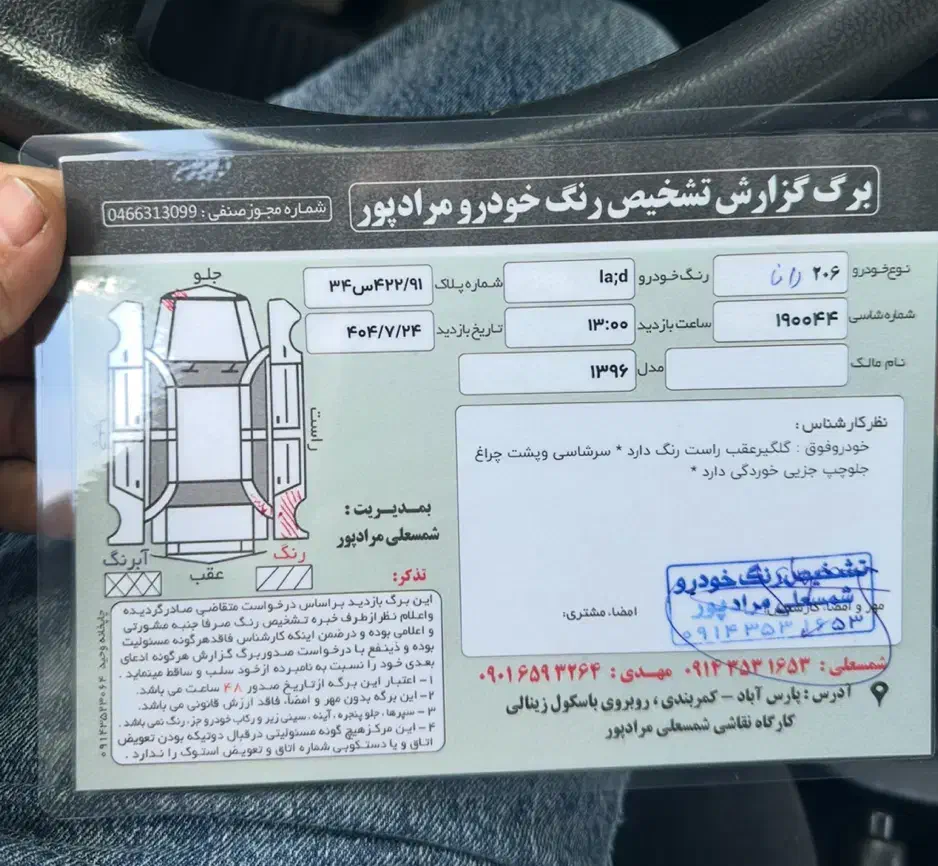 برگ گزارش تشخیص رنگ خودرو مرادپور
شماره مجوز صنفی : 0466313099
نوع خودرو ۲۰۶ رانا رنگ خودرو la;d شماره پلاک ۳۴س۴۲۲/۹۱
شماره شاسی ۱۹۰۰۴۴ ساعت بازدید ۱۳:۰۰ تاریخ بازدید ۴۰۴/۷/۲۴
نام مالک مدل ۱۳۹۶
نظر کارشناس :
خودرو فوق : گلگیر عقب راست رنگ دارد * سرشاسی و پشت چراغ
جلو چپ جزیی خوردگی دارد *
مهر و امضا، کارشناس امضا، مشتری:
تشخیص رنگ خودرو
شمسعلی مرادپور
۰۹۱۴۳۵۳۱۶۵۳
شمسعلی : ۰۹۱۴۳۵۳۱۶۵۳ مهدی : ۰۹۰۱۶۵۹۳۲۶۴
آدرس : پارس آباد – کمربندی ، روبروی باسکول زینالی
کارگاه نقاشی شمسعلی مرادپور
جلو
راست
عقب
رنگ
آبرنگ
بمدیریت :
شمسعلی مرادپور
تذکر:
این برگ بازدید بر اساس درخواست متقاضی صادر گردیده
و اعلام نظر از طرف خبره تشخیص رنگ صرفا جنبه مشورتی
و اعلامی بوده و در ضمن اینکه کارشناس فاقد هرگونه مسئولیت
بوده و ذینفع با درخواست صدور برگ گزارش هرگونه ادعای
بعدی خود را نسبت به نامبرده از خود سلب و ساقط مینماید .
۱– اعتبار این برگه از تاریخ صدور ۴۸ ساعت می باشد.
۲– این برگه بدون مهر و امضا، فاقد ارزش قانونی می باشد.
۳– سپرها ، جلو پنجره ، آینه ، سینی زیر و رکاب خودرو جز، رنگ نمی باشد .
۴– این مرکز هیچ گونه مسئولیتی در قبال دوتیکه بودن تعویض
اتاق و یا دستکوبی شماره اتاق و تعویض استوک را ندارد .
چاپخانه وحید ۰۹۱۴۳۵۲۳۰۶۴